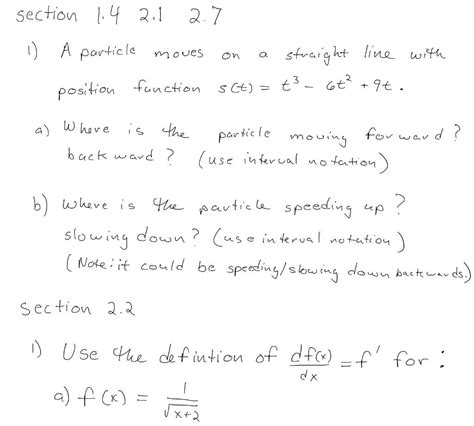 section 1.4 2.1 2.7
1) A particle moves on a straight line with
position function s(t) = t³ - 6t² + 9t.
a) Where is the particle moving forward?
backward? (use interval notation)
b) where is the particle speeding up?
slowing down? (use interval notation)
(Note: it could be speeding/slowing down backwards.)
section 2.2
1) Use the defintion of df(x)/dx = f' for:
a) f(x) = 1/√(x+2)